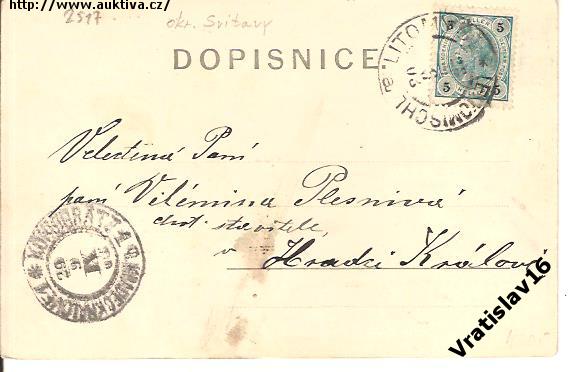 http://www.auktiva.cz/
2517
okr. Svitavy
DOPISNICE
5 HELLER 5
5 5
LITOM
TOMISCHL
Velectěná Paní
paní Vilémina Plesnivá
choť stavitele,
v Hradci Králové
KÖNIGGRATZ 1
HRADEC KRÁLOVÉ 1
XI
Vratislav16